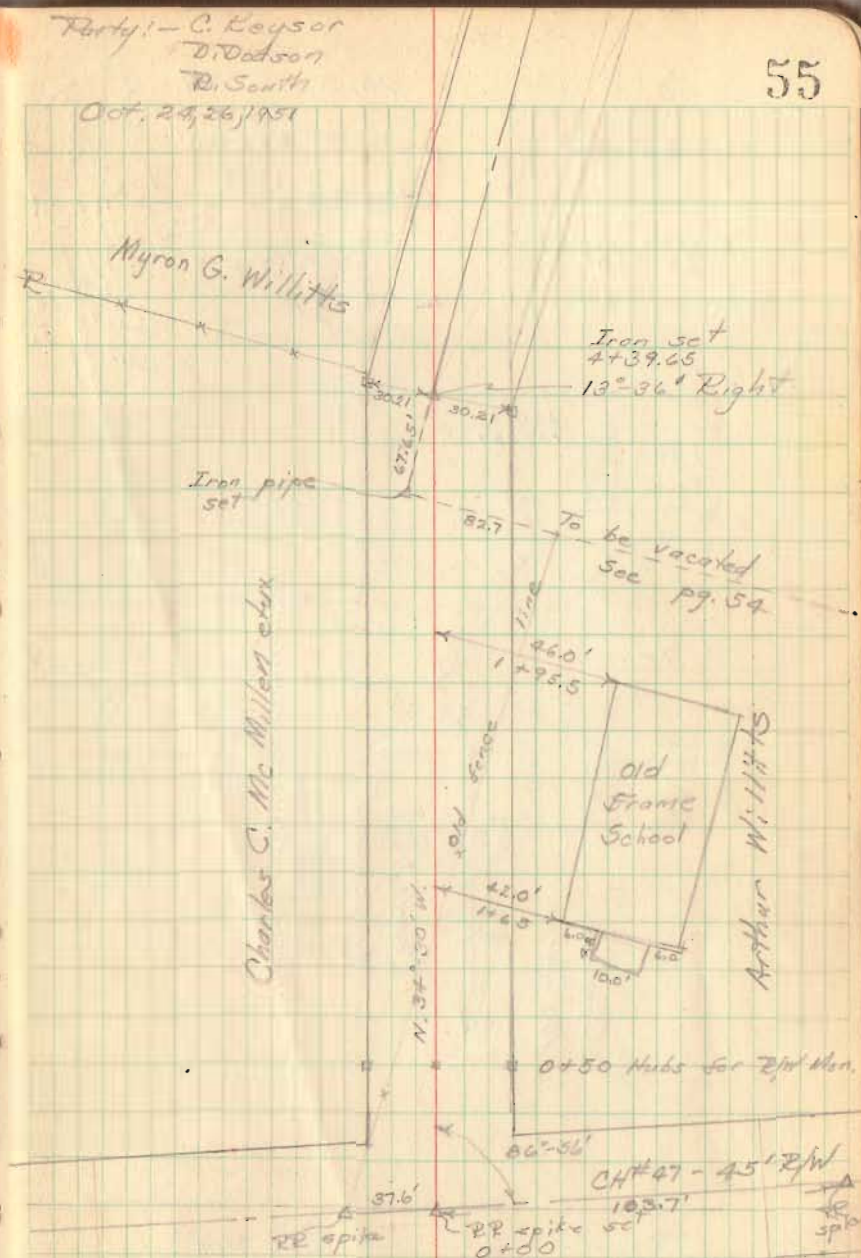 Party:- C. Keysor
D. Dodson
R. South
Oct. 24, 26, 1951
55
Myron G. Willitts
Iron set
4+39.65
13°-36' Right
30.21
30.21
67.65'
Iron pipe
set
82.7
To be vacated
See pg. 54
Old fence line
46.0'
1+95.5
Charles C. McMillen etux
Old
Frame
School
Arthur Willitts
42.0'
1+65
6.0
10.0'
6.0
N. 34°-30' W.
0+50 Hubs for R/W Mon.
86°-56'
CH#47 - 45' R/W
37.6'
103.7'
RR spike
RR spike set
0+00
RR